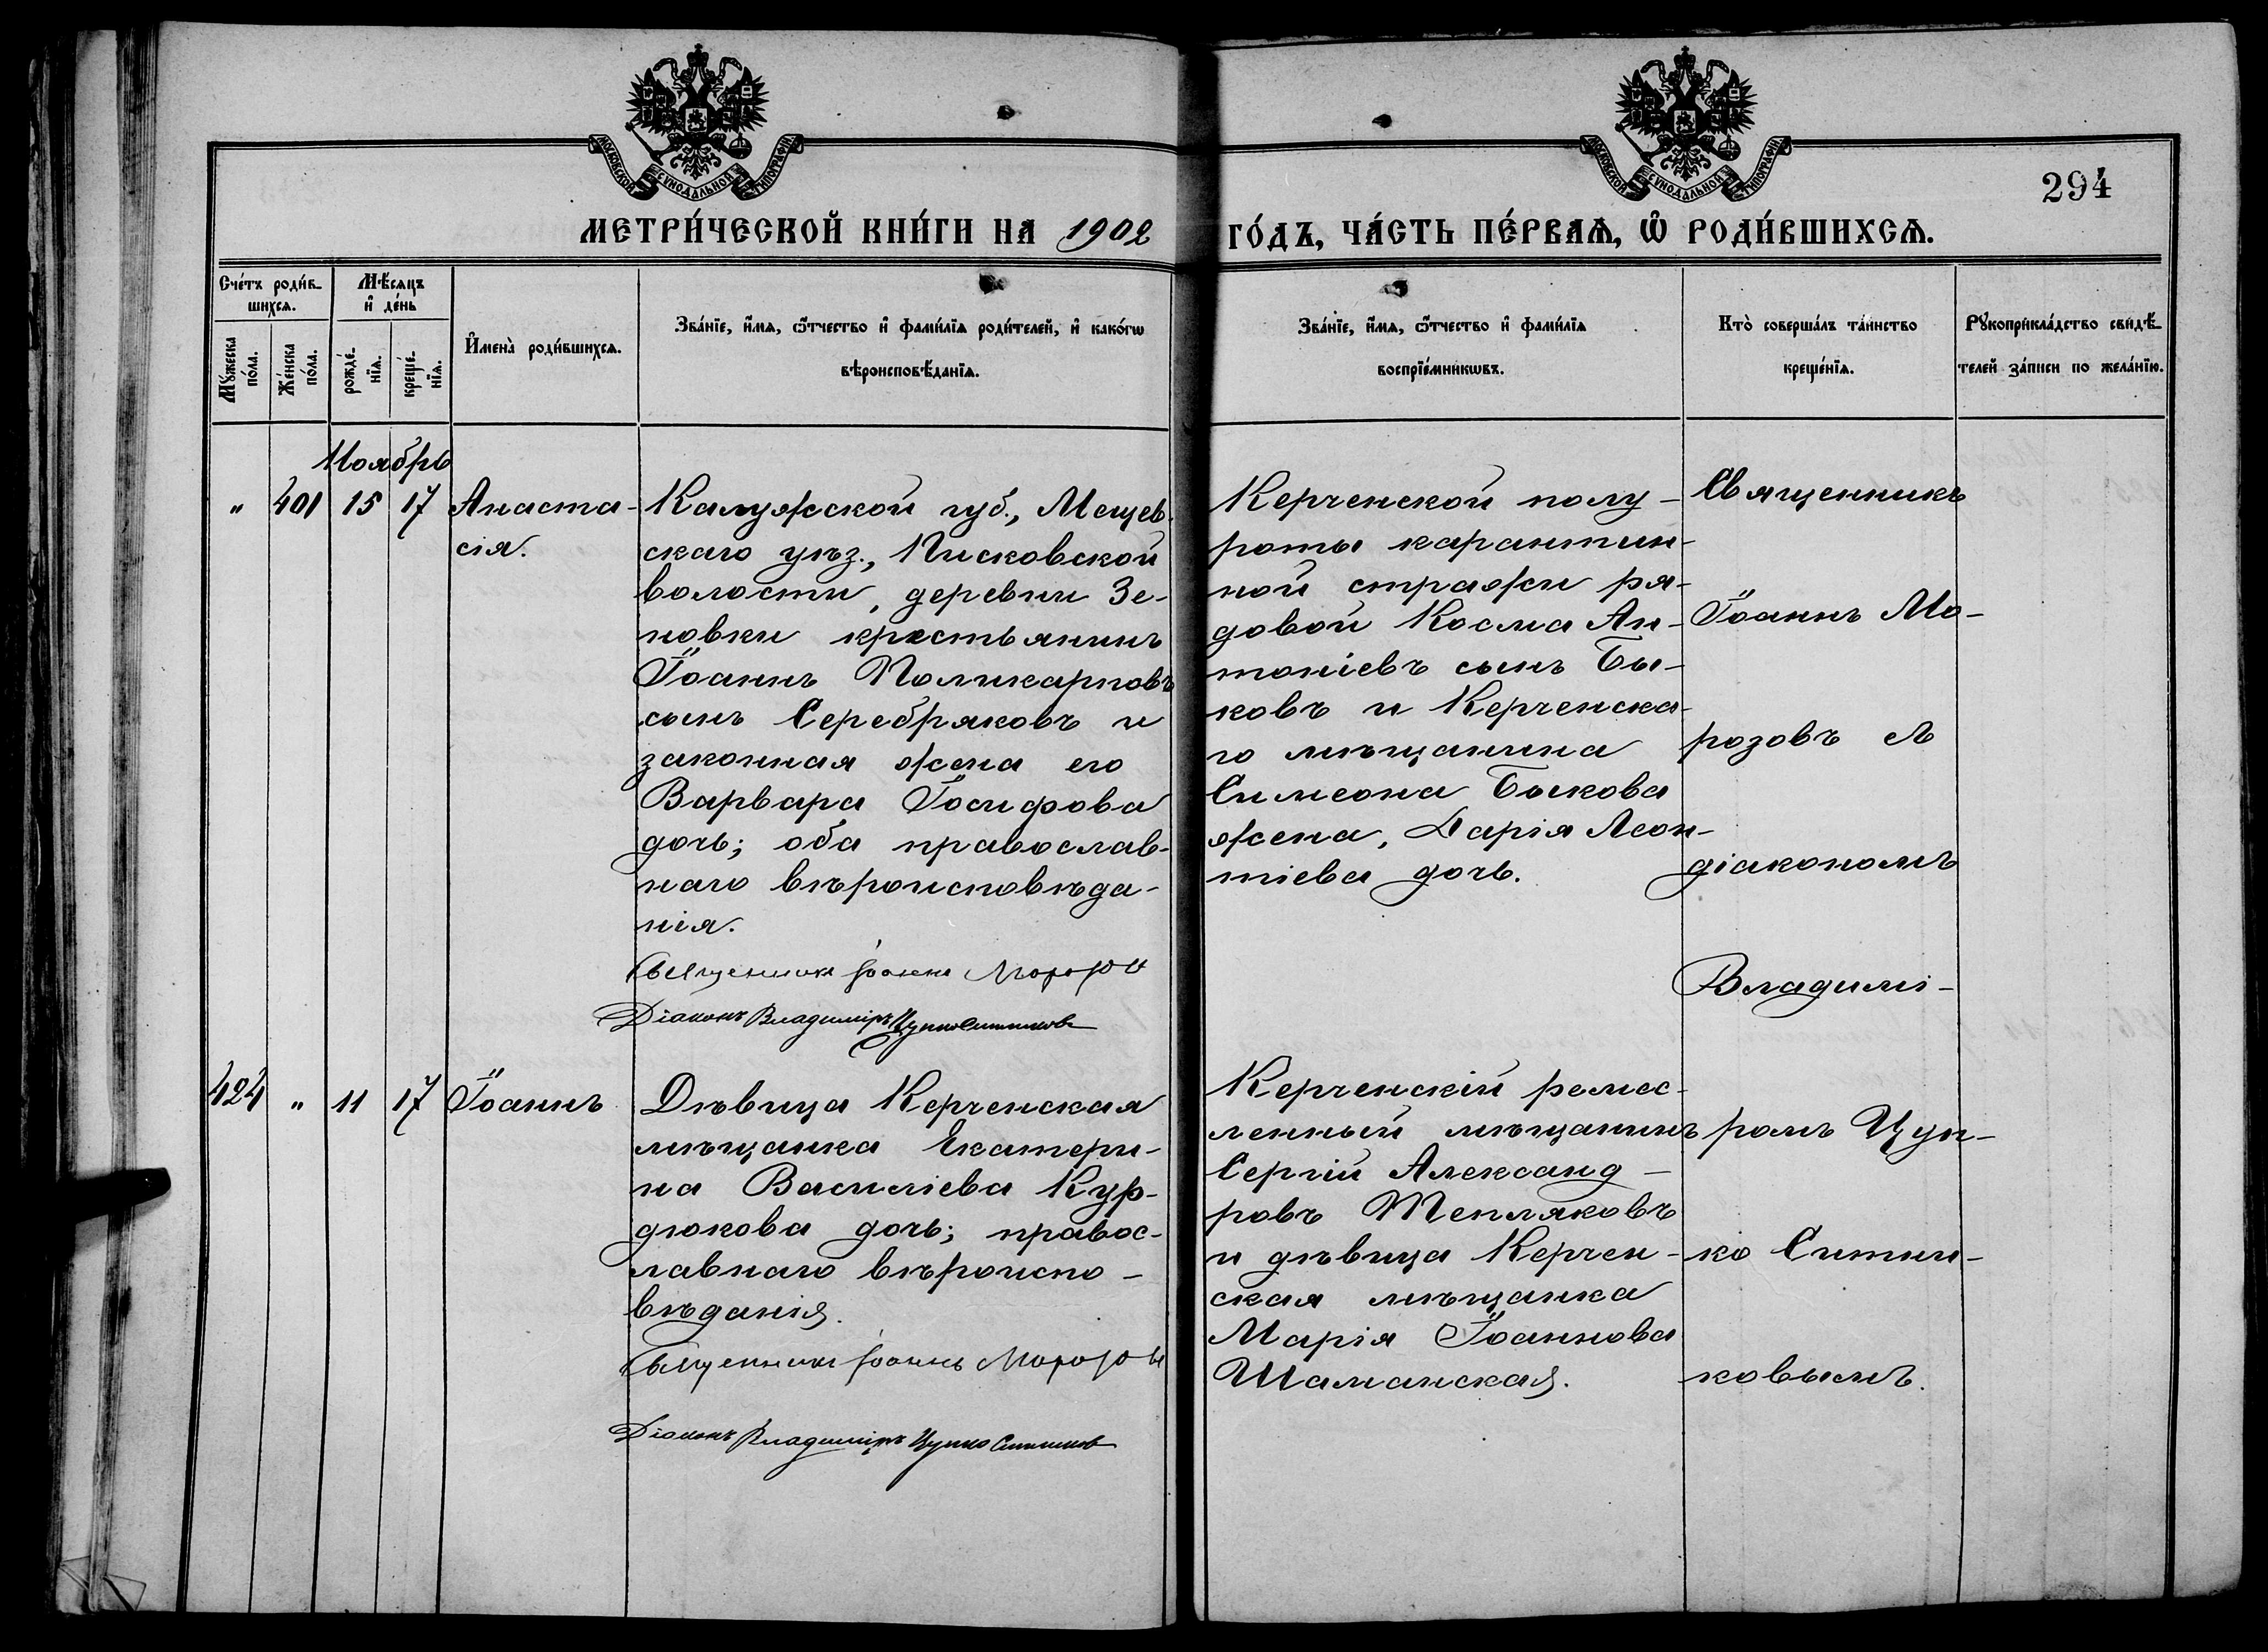 МОСКОВСКОЙ СѴНОДАЛЬНОЙ ТИПОГРАФІИ
МОСКОВСКОЙ СѴНОДАЛЬНОЙ ТИПОГРАФІИ
294
МЕТРИ́ЧЕСКОЙ КНИ́ГИ НА 1902 ГО́ДЪ, ЧА́СТЬ ПЕ́РВАѦ, Ѡ҆ РОДИ́ВШИХСѦ.
Сче́тъ роди́в-
шихся.
Мꙋжеска по́ла.
Же́нска по́ла.
Мѣ́сяцъ
и҆ де́нь
рожде́-
нїѧ.
креще́-
нїѧ.
И҆мена̀ роди́вшихсѧ.
Зва́нїе, и҆́мѧ, ѻ҆́тчество и҆ фами́лїѧ роди́телей, и҆ како́гѡ
вѣроисповѣ́данїѧ.
Зва́нїе, и҆́мѧ, ѻ҆́тчество и҆ фами́лїѧ
воспрїе́мникѡвъ.
Кто̀ соверша́лъ та́инство
креще́нїѧ.
Рꙋкоприкла́дство свидѣ́-
телей за́писи по жела́нїю.
Ноябрь
" 401 15 17 Анаста-
сія.
Калужской губ., Мещев-
скаго уѣз., Писковской
волости, деревни Зе-
новки крестьянинъ
Іоаннъ Поликарповъ
сынъ Серебряковъ и
законная жена его
Варвара Іосифова
дочь; оба православ-
наго вѣроисповѣда-
нія.
Священникъ Іоаннъ Морозовъ
Діаконъ Владиміръ Цупко Ситниковъ
Керченской полу-
роты карантин-
ной стражи ря-
довой Косма Ан-
тоніевъ сынъ Бы-
ковъ и Керченска-
го мѣщанина
Симеона Быкова
жена, Дарія Леон-
тіева дочь.
Священникъ
Іоаннъ Мо-
розовъ съ
діакономъ
Владимі-
ромъ Цуп-
ко Ситни-
ковымъ.
424 " 11 17 Іоаннъ
Дѣвица Керченская
мѣщанка Екатери-
на Василіева Кур-
дюкова дочь; правос-
лавнаго вѣроиспо-
вѣданія.
Священникъ Іоаннъ Морозовъ
Діаконъ Владиміръ Цупко Ситниковъ
Керченскій ремес-
ленный мѣщанинъ
Сергій Александ-
ровъ Тепляковъ
и дѣвица Керчен-
ская мѣщанка
Марія Іоаннова
Шаманская.